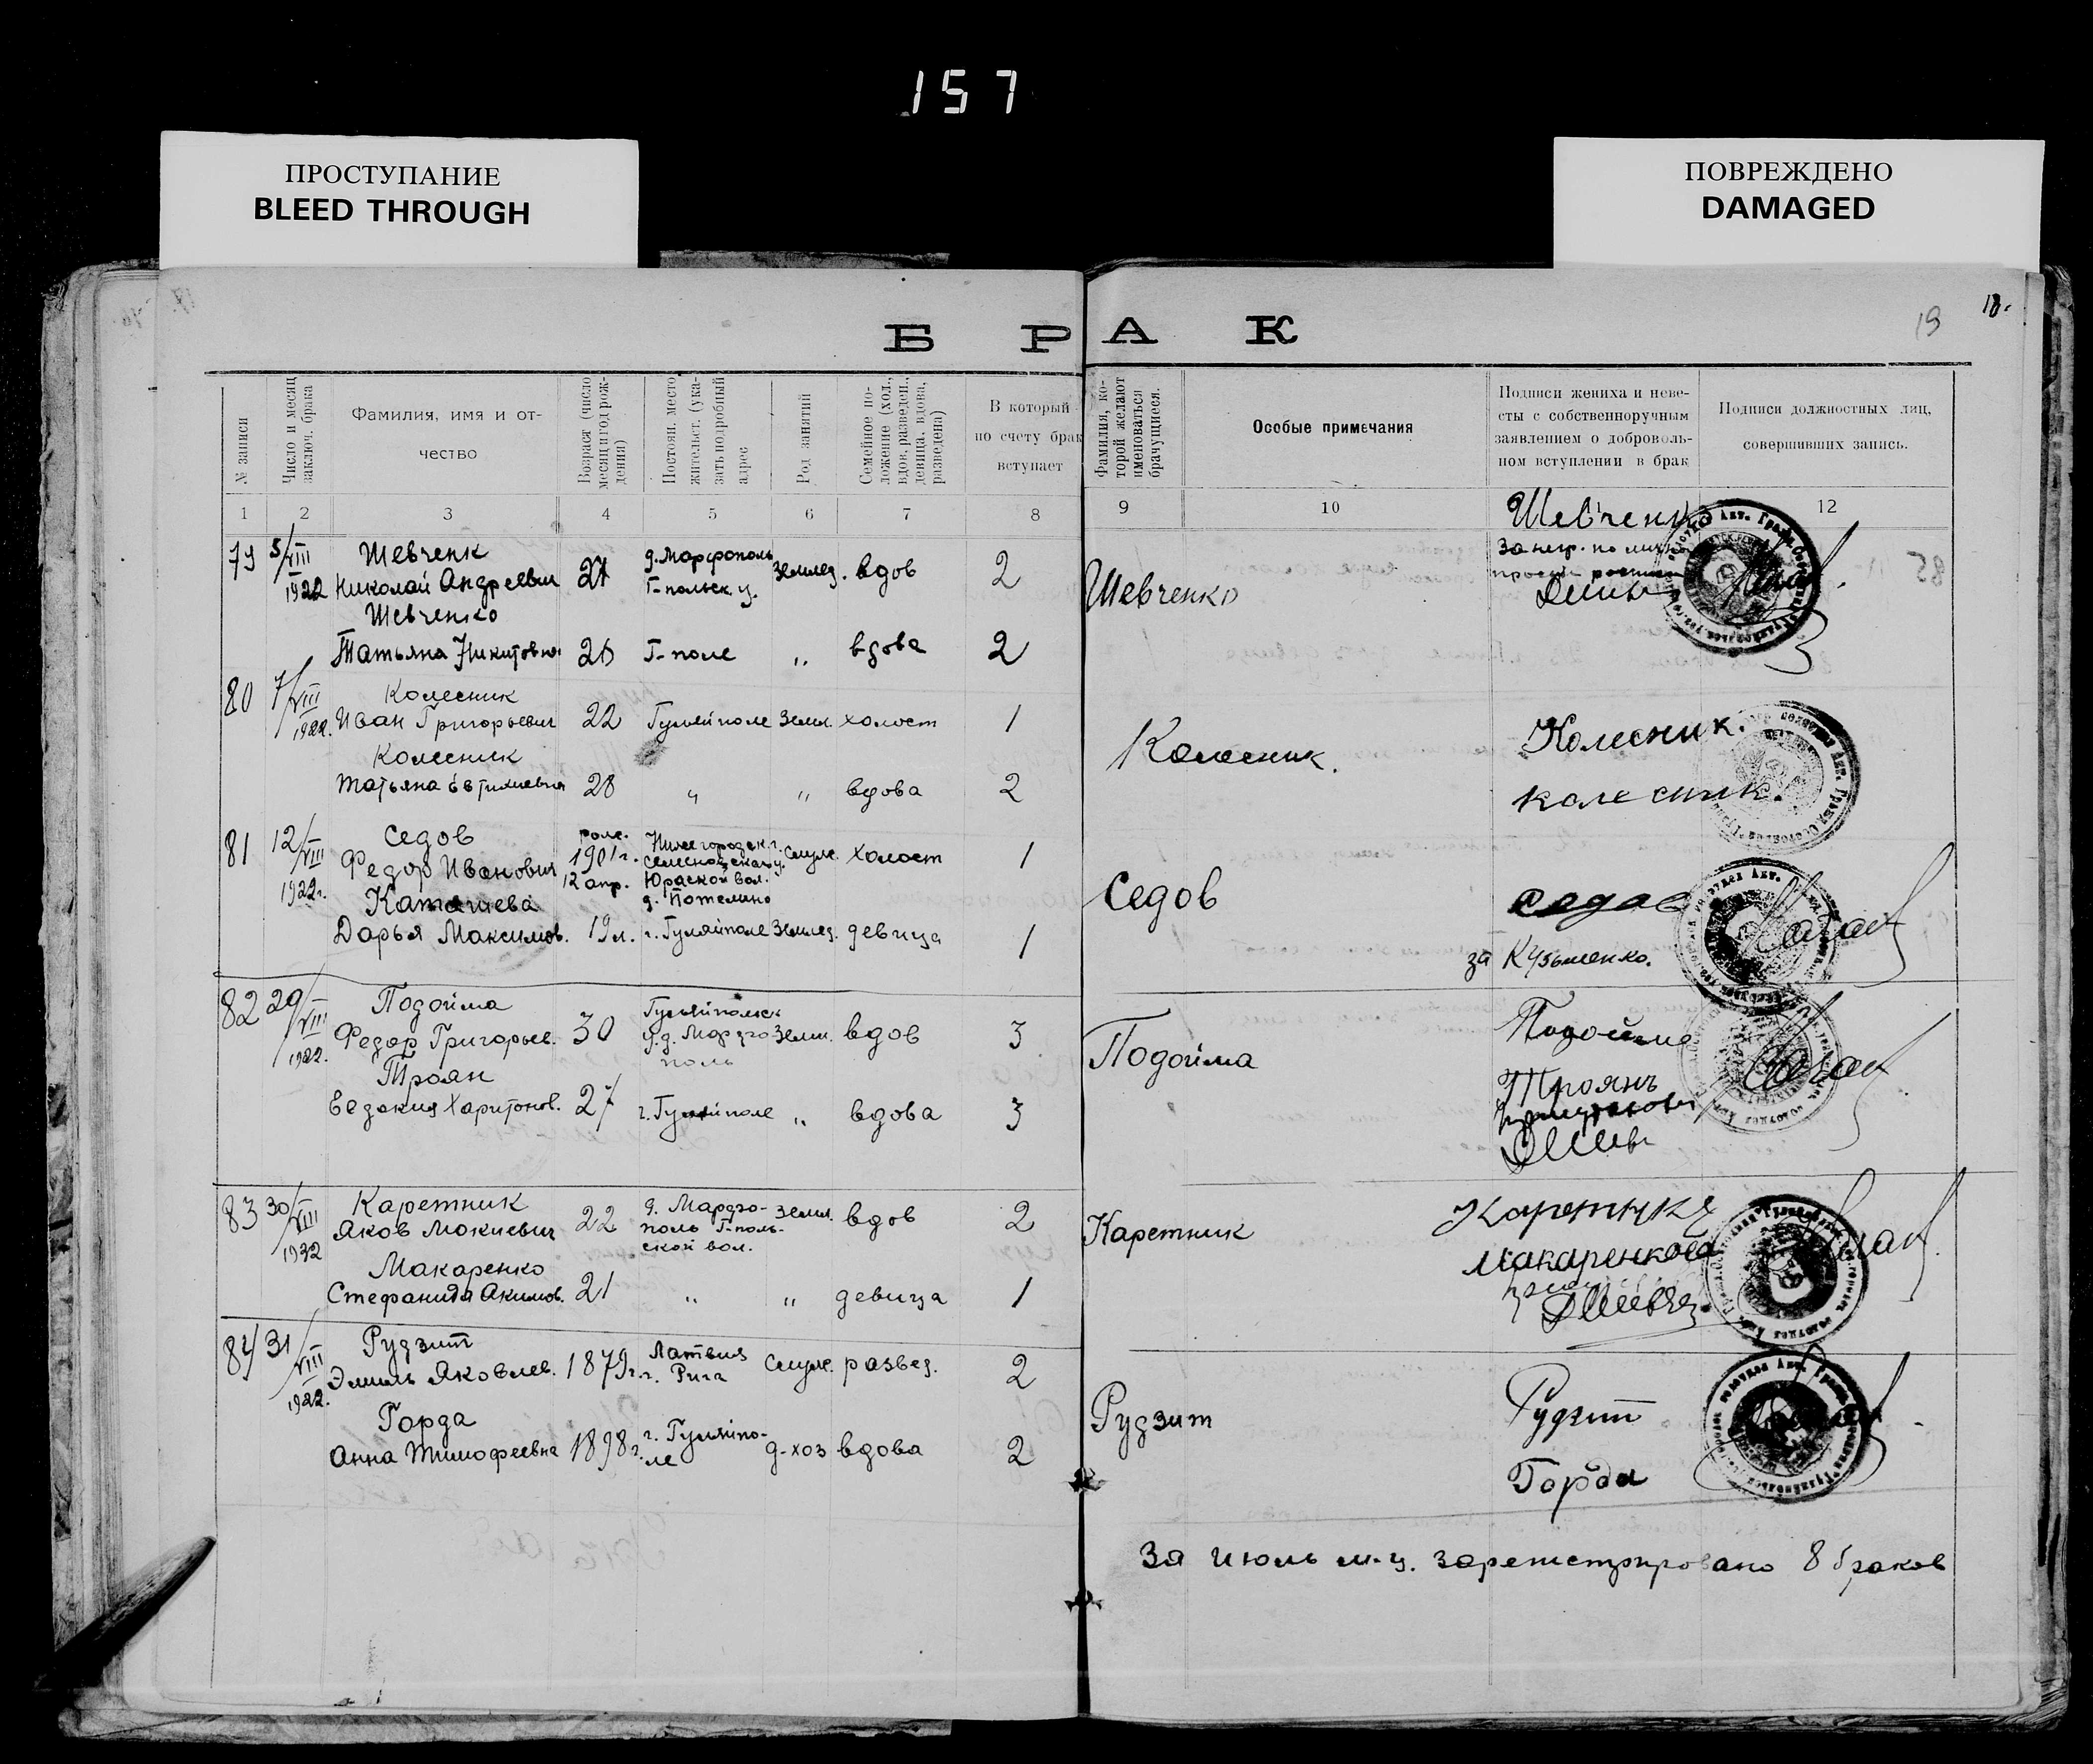 157
ПРОСТУПАНИЕ
BLEED THROUGH
ПОВРЕЖДЕНО
DAMAGED
19
18.
БРАК
№ записи
Число и месяц заключ. брака
Фамилия, имя и отчество
Возраст (число месяц и год рождения)
Постоян. место жительст. (указать подробный адрес
Род занятий
Семейное положение (хол., вдов, разведен., девица, вдова, разведена)
В который по счету брак вступает
Фамилия, которой желают именоваться брачущиеся.
Особые примечания
Подписи жениха и невесты с собственноручным заявлением о добровольном вступлении в брак
Подписи должностных лиц, совершивших запись.
1 2 3 4 5 6 7 8 9 10 11 12
79 5/VIII 1922 Шевченк
Николай Андреевич 27 д. Марфополь Г-польск. у. Землед. вдов 2 Шевченко
Шевченко
Татьяна Никитовна 26 Г-поле " вдова 2
Шевченк
80 7/VIII 1922. Колесник
Иван Григорьевич 22 Гуляйполе Землд. холост 1 Колесник.
Колесник
Татьяна Евтихиевна 28 " " вдова 2
Колесник.
колесник.
81 12/VIII 1922г. Седов
Федор Иванович 1901г. 12 апр. Нижегородск. г. Семеновская у. Юраской вол. д. Потемино Служ. Холост 1 Седов
Каташева
Дарья Максимов. 19 л. г. Гуляйполе Землед. девица 1
Седов
за Кузьменко.
82 29/VIII 1922. Подойма
Федор Григорьев. 30 Гуляйпольск у. д. Марфополь Земл. вдов 3 Подойма
Троян
Евдокия Харитонов. 27 г. Гуляйполе " вдова 3
Подойма
Троянъ
83 30/VIII 1922 Каретник
Яков Мокиевич 22 д. Марфополь Г-польской вол. Землд. вдов 2 Каретник
Макаренко
Стефанида Акимов. 21 " " девица 1
Макаренкова
84 31/VIII 1922. Рудзит
Эмиль Яковлев. 1879г. Латвия г. Рига Служ. развед. 2 Рудзит
Горда
Анна Тимофеевна 1898г. г. Гуляйполе д-хоз вдова 2
Рудзит
Горда
За июль м-ц. зарегистрировано 8 браков